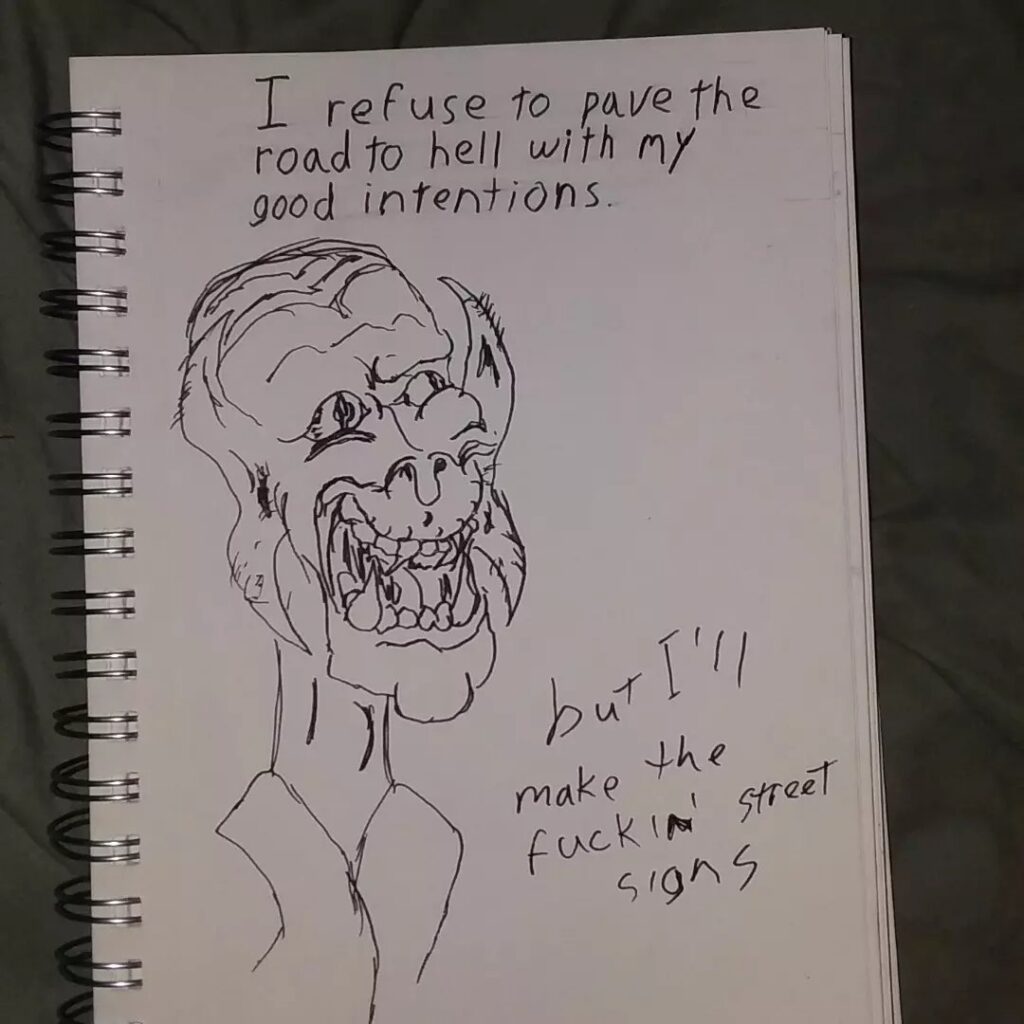 I refuse to pave the
road to hell with my
good intentions.
but I'll
make the
fuckin' street
signs